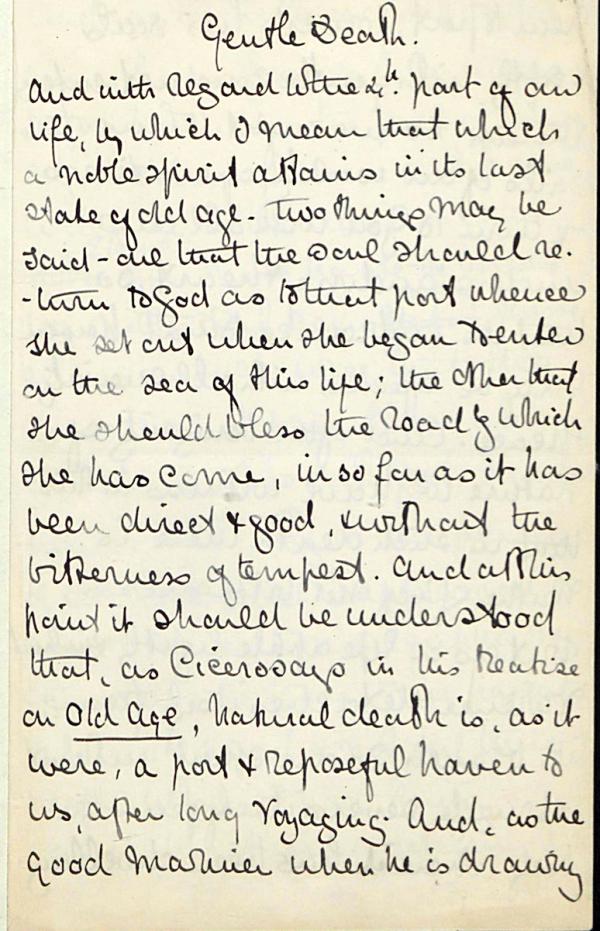 Gentle Death.
And with regard to the 4th. part of our
life, by which I mean that which
a noble spirit attains in its last
state of old age. two things may be
said - one that the soul should re.
-turn to God as to that port whence
she set out when she began to enter
on the sea of this life; the other that
she should bless the road by which
she has come, in so far as it has
been direct & good, & without the
bitterness of tempest. And at this
point it should be understood
that, as Cicero says in his treatise
on Old Age, natural death is, as it
were, a port & reposeful haven to
us, after long voyaging. And, as the
good Mariner when he is drawing